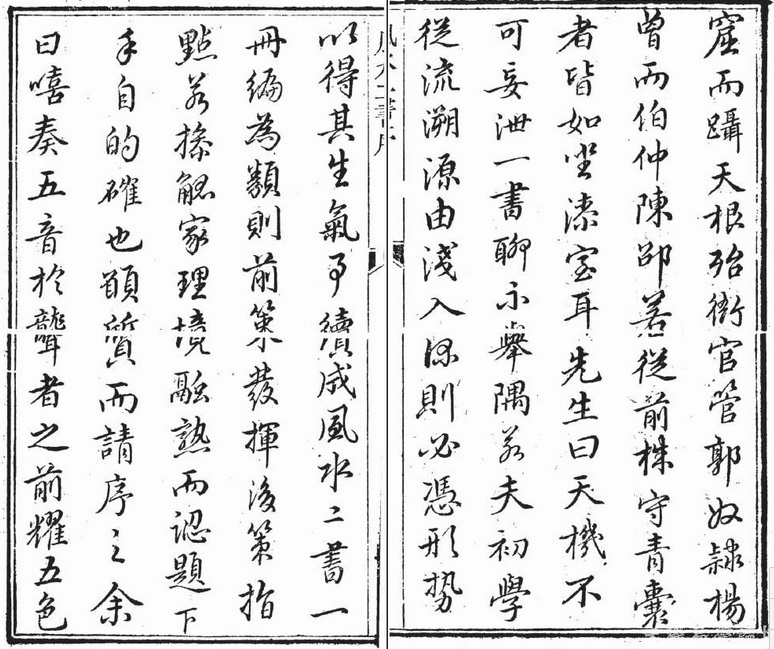 窟而躡天根殆衙官管郭奴隸楊
曾而伯仲陳邵若從前株守青囊
者皆如坐漆室耳先生曰天機不
可妄泄一書聊示舉隅若夫初學
從流溯源由淺入深則必憑形勢
風水二書序
以得其生氣乃續成風水二書一
冊編為類則前策發揮後策指
點若操觚家理境融熟而認題下
手自的確也頤質而請序之余
曰嘻奏五音於聾者之前耀五色